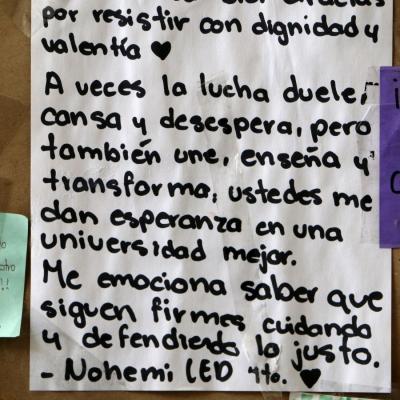 por resistir con dignidad y
valentía ♥
A veces la lucha duele,
cansa y desespera, pero
también une, enseña y
transforma, ustedes me
dan esperanza en una
universidad mejor.
Me emociona saber que
siguen firmes cuidando
y defendiendo lo justo.
- Nohemi LED 4to. ♥